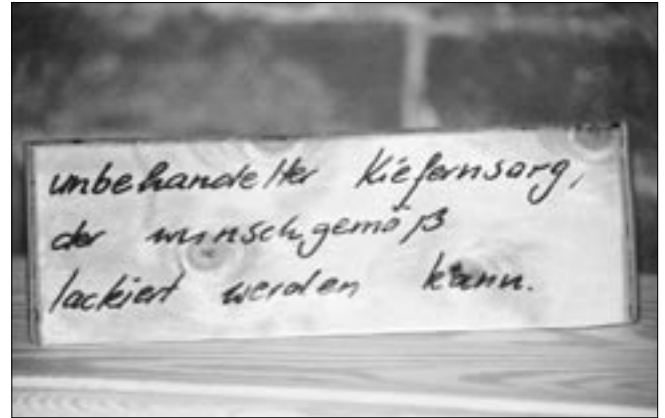 unbehandelter Kiefernsarg,
der wunschgemäß
lackiert werden kann.